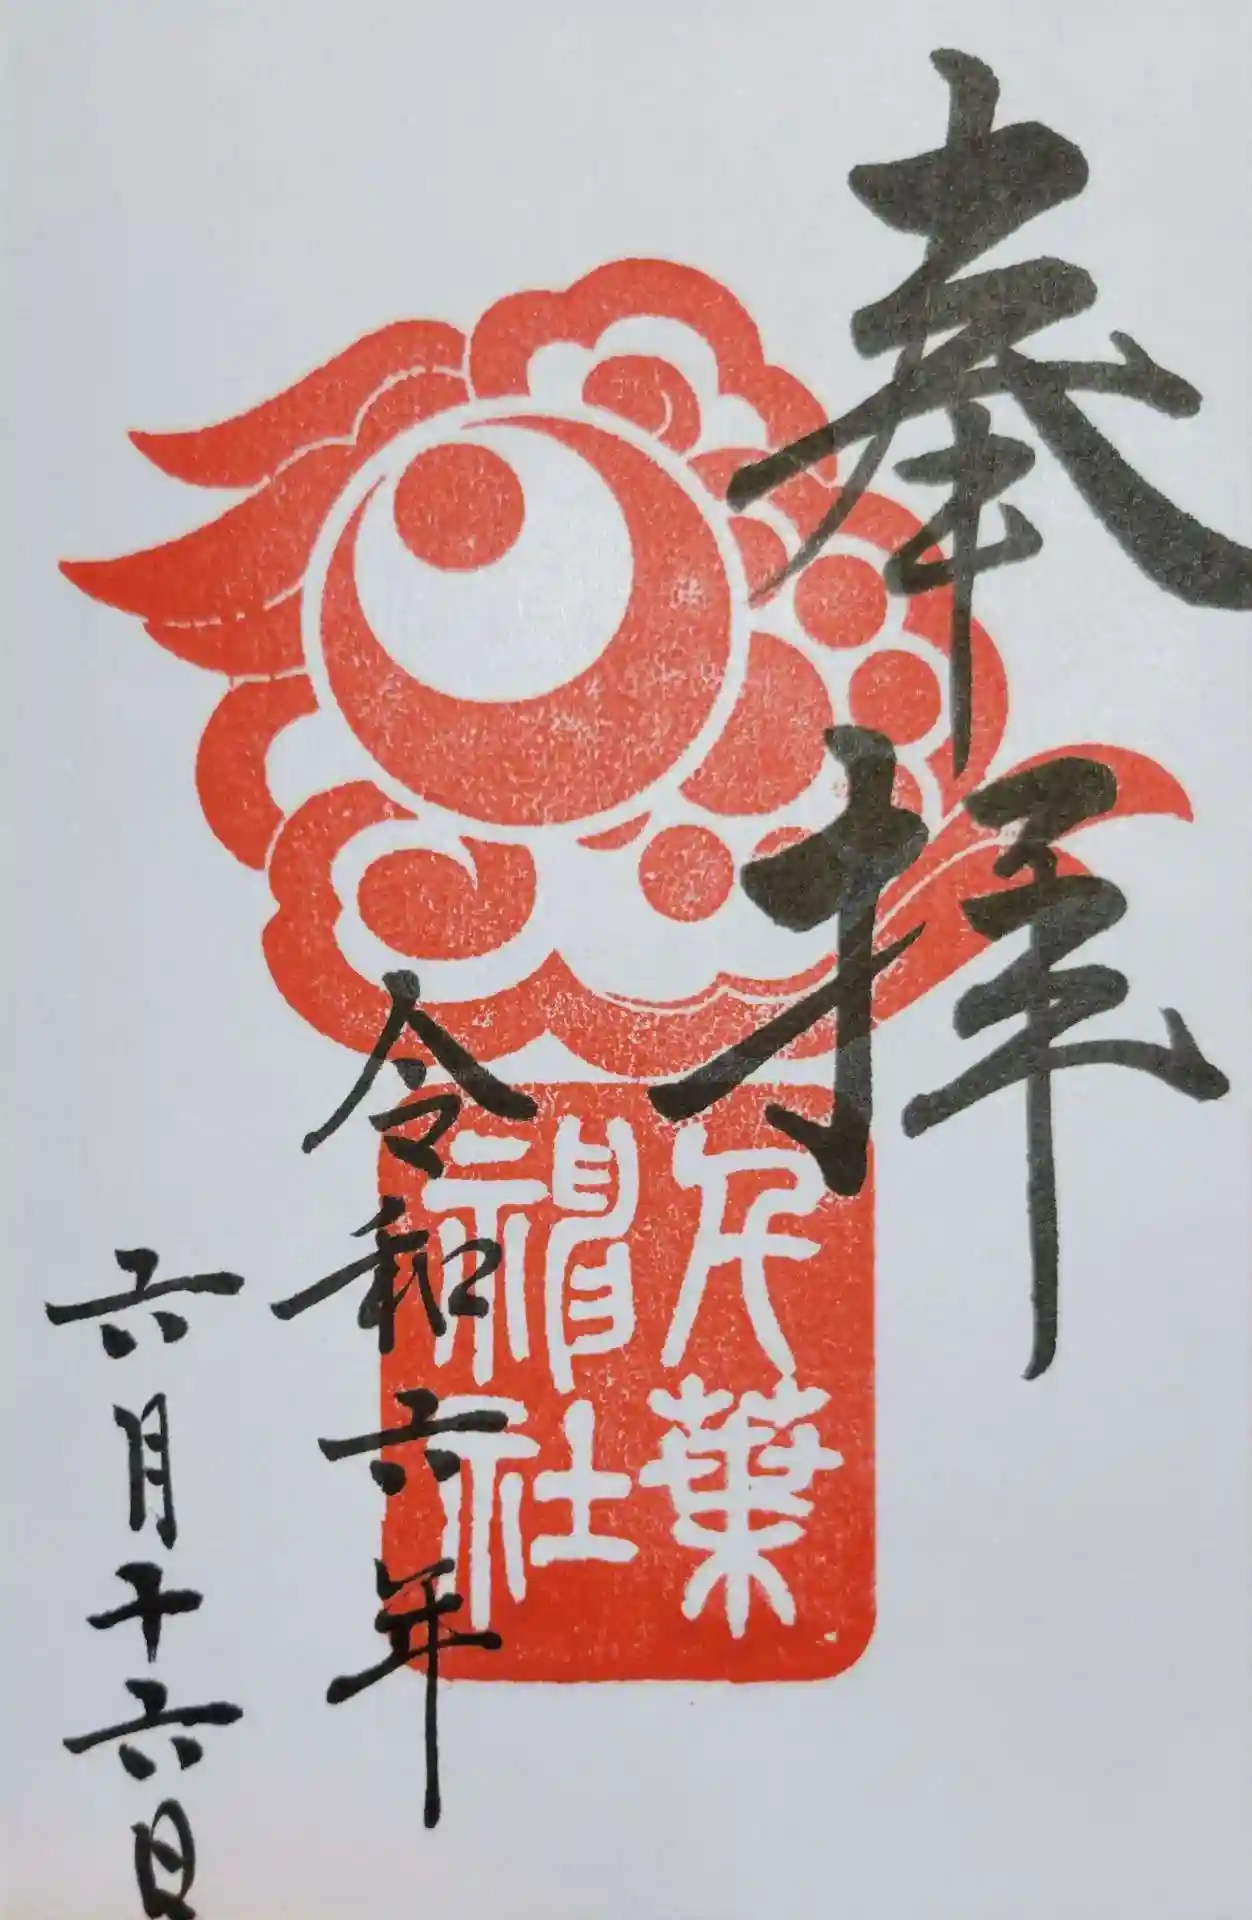 奉拝
千葉
神社
令和六年
六月十六日